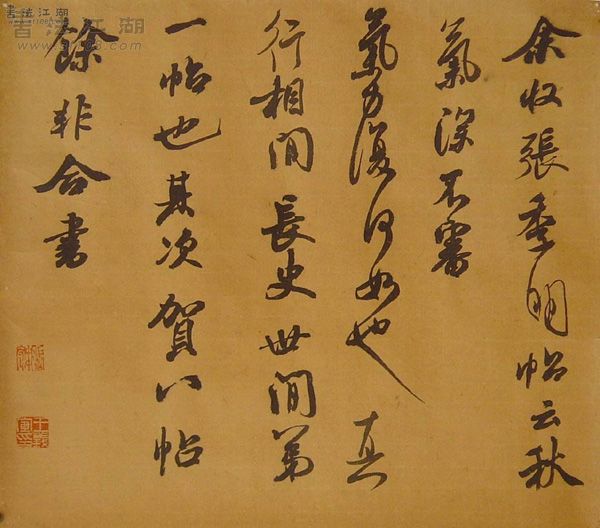 余收張季明帖云秋
氣深不審
氣力復何如也真
行相間長史世間第
一帖也其次賀八帖
餘非合書
書法江湖